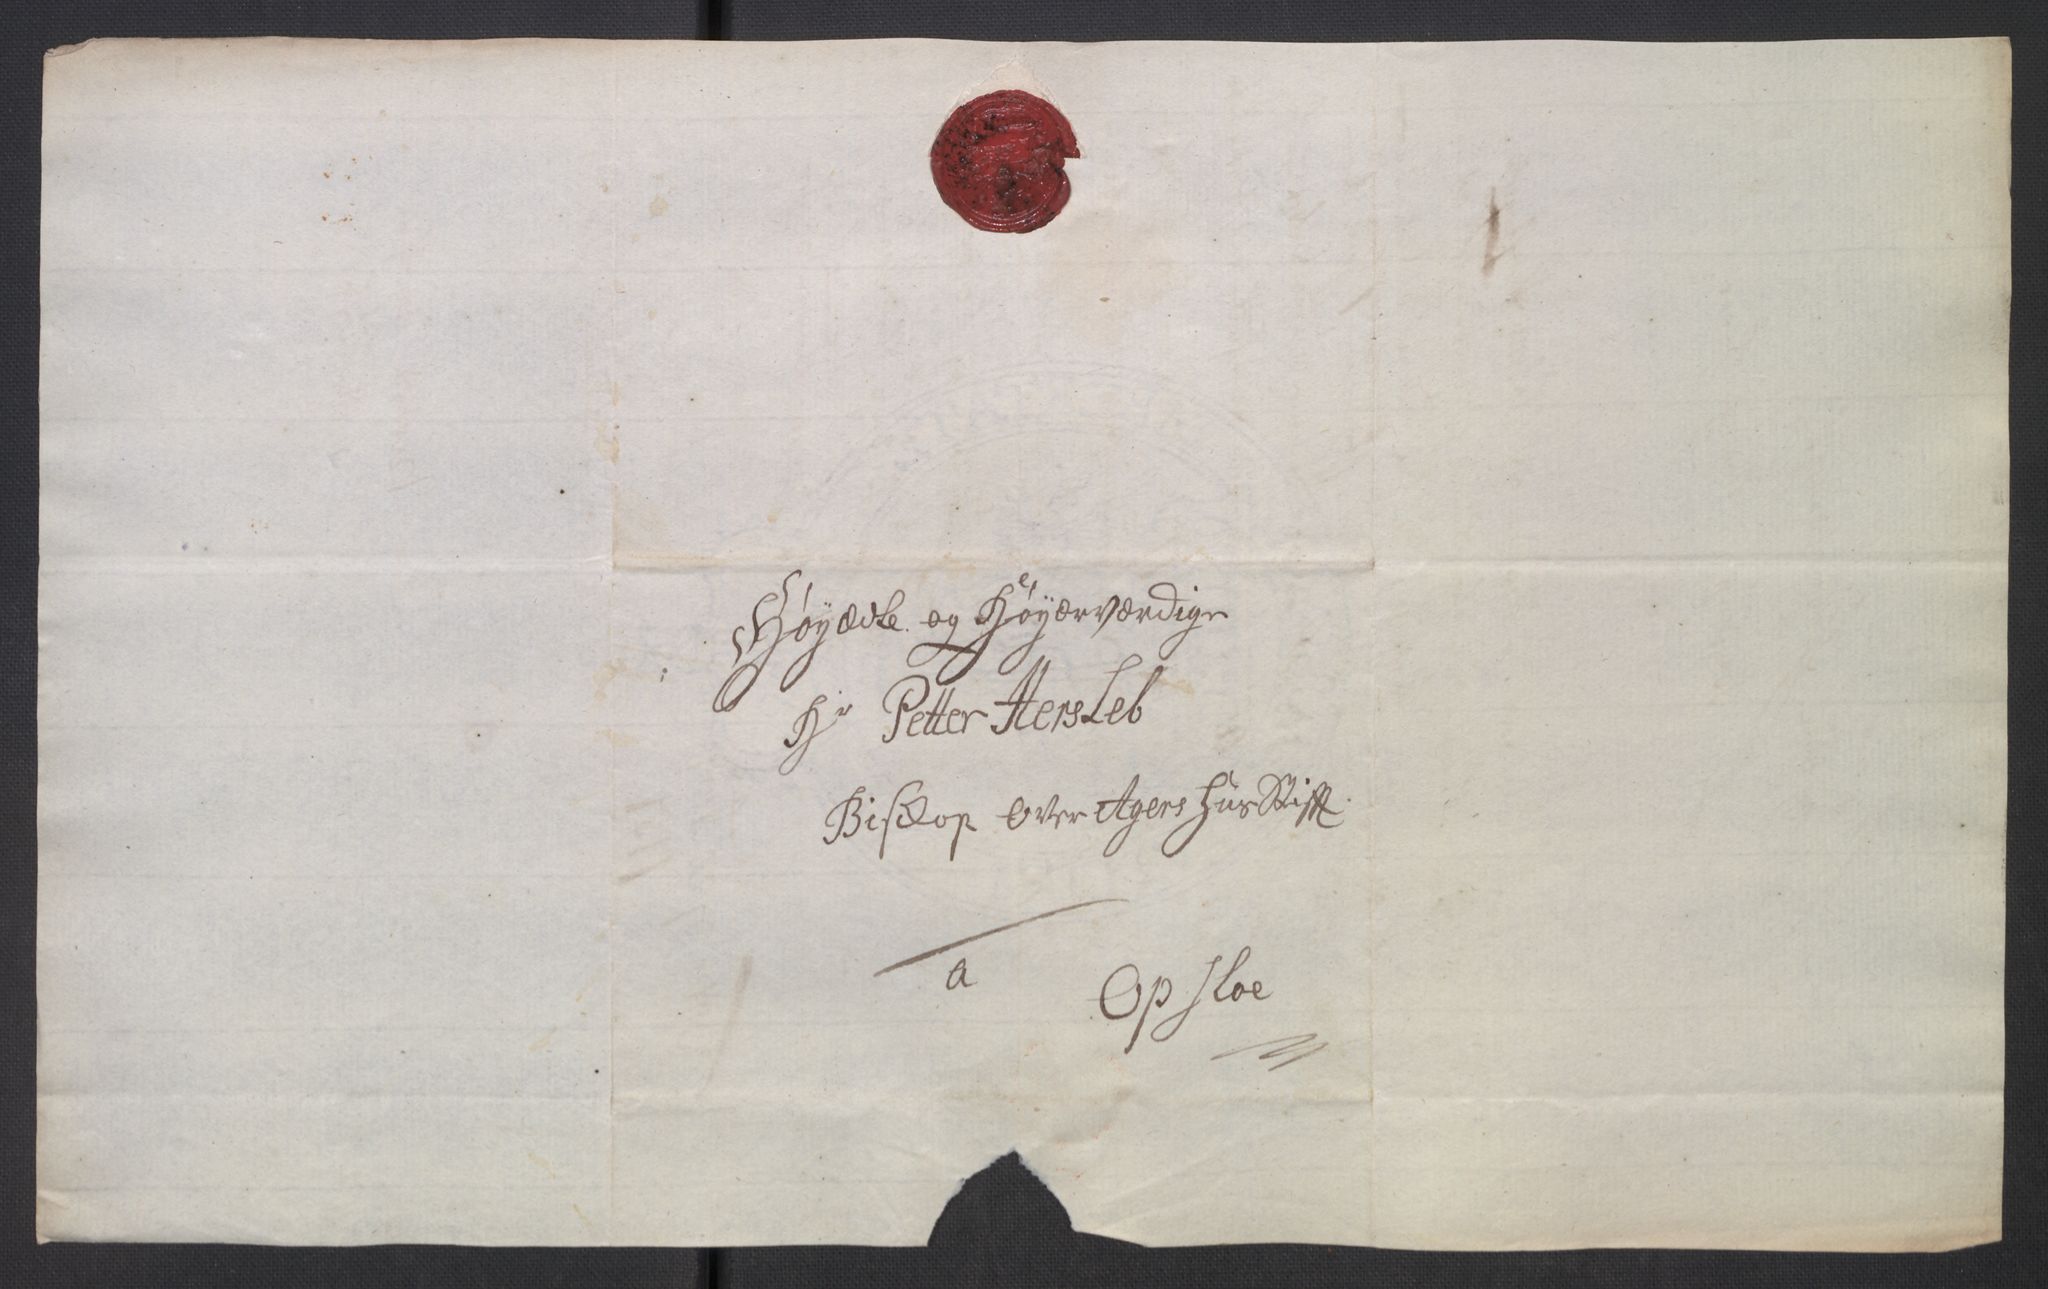 Høyædle og Høyærværdige
Hr Petter Hersleb
Biskop over Agershuus Stifft.
a Opsloe